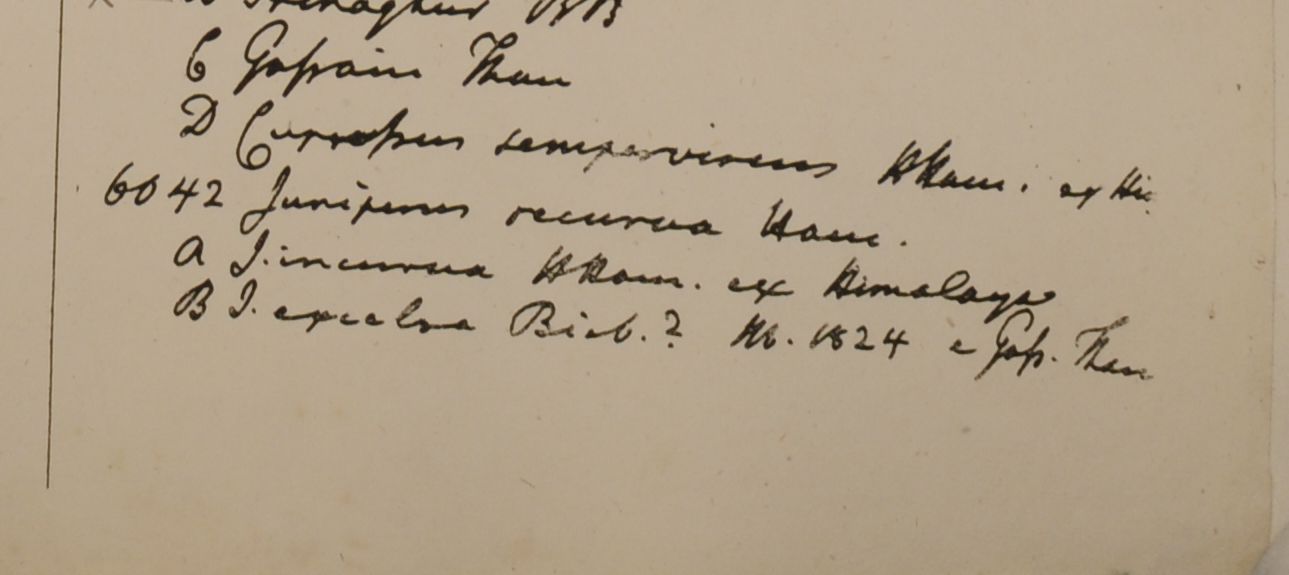 Srinaghur BB
C Gossain Than
D Cupressus sempervirens HHam. ex Hi
6042 Juniperus recurva Ham.
A J. incurva HHam. ex Himalaya
B J. excelsa Bieb.? Hb. 1824 e Goss. Than